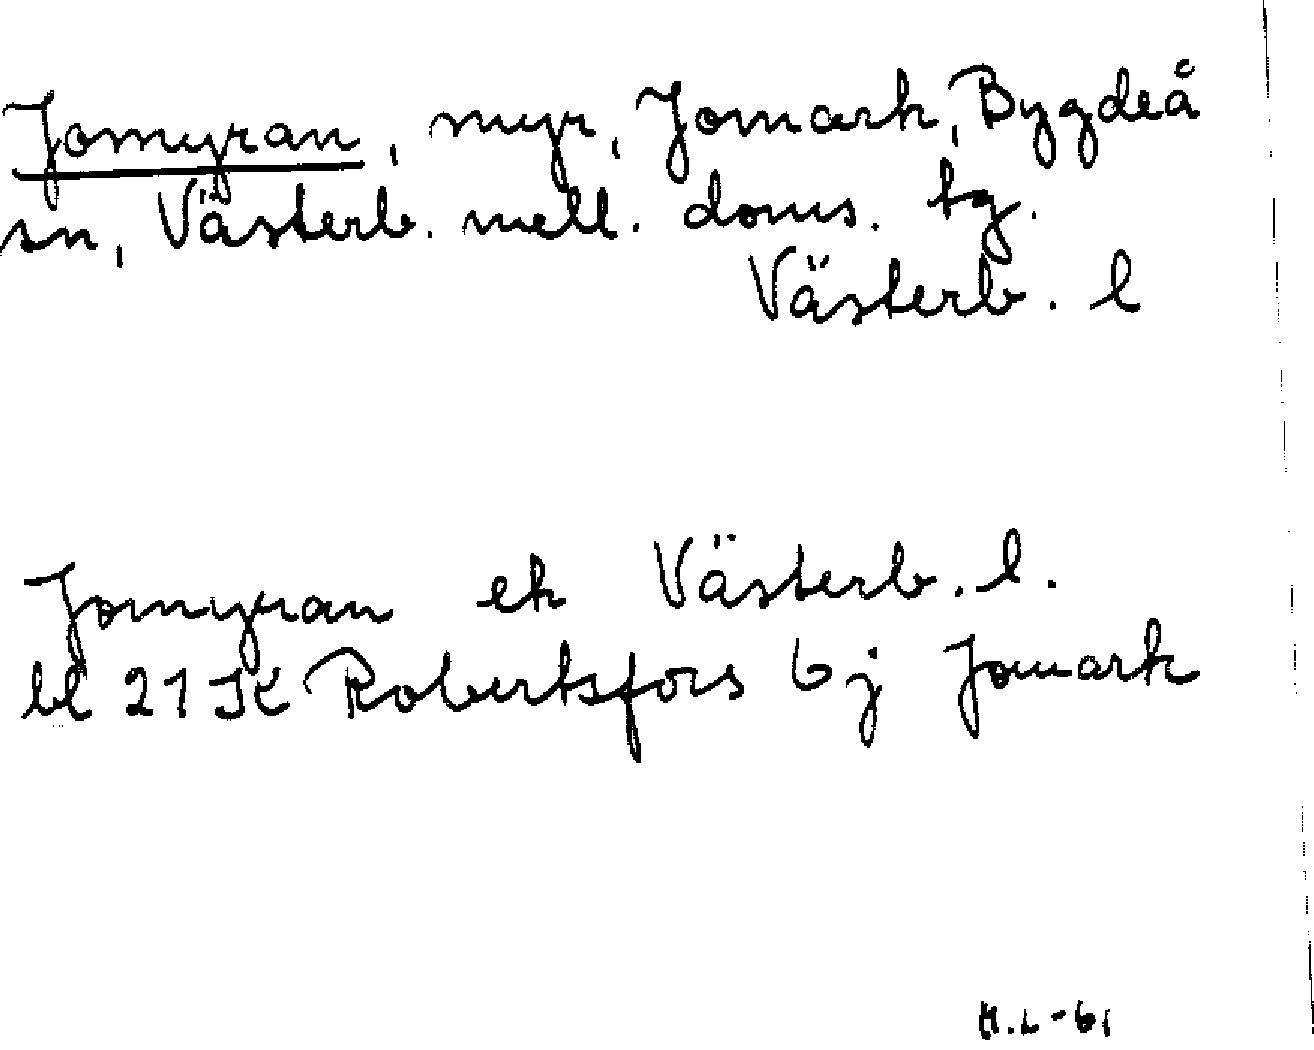 Jomyran, myr, Jomark, Bygdeå
sn, Västerb. mell. doms. tg.
Västerb. l
Jomyran ek Västerb. l.
bl 21 K Robertsfors 6j Jomark
H.L-61